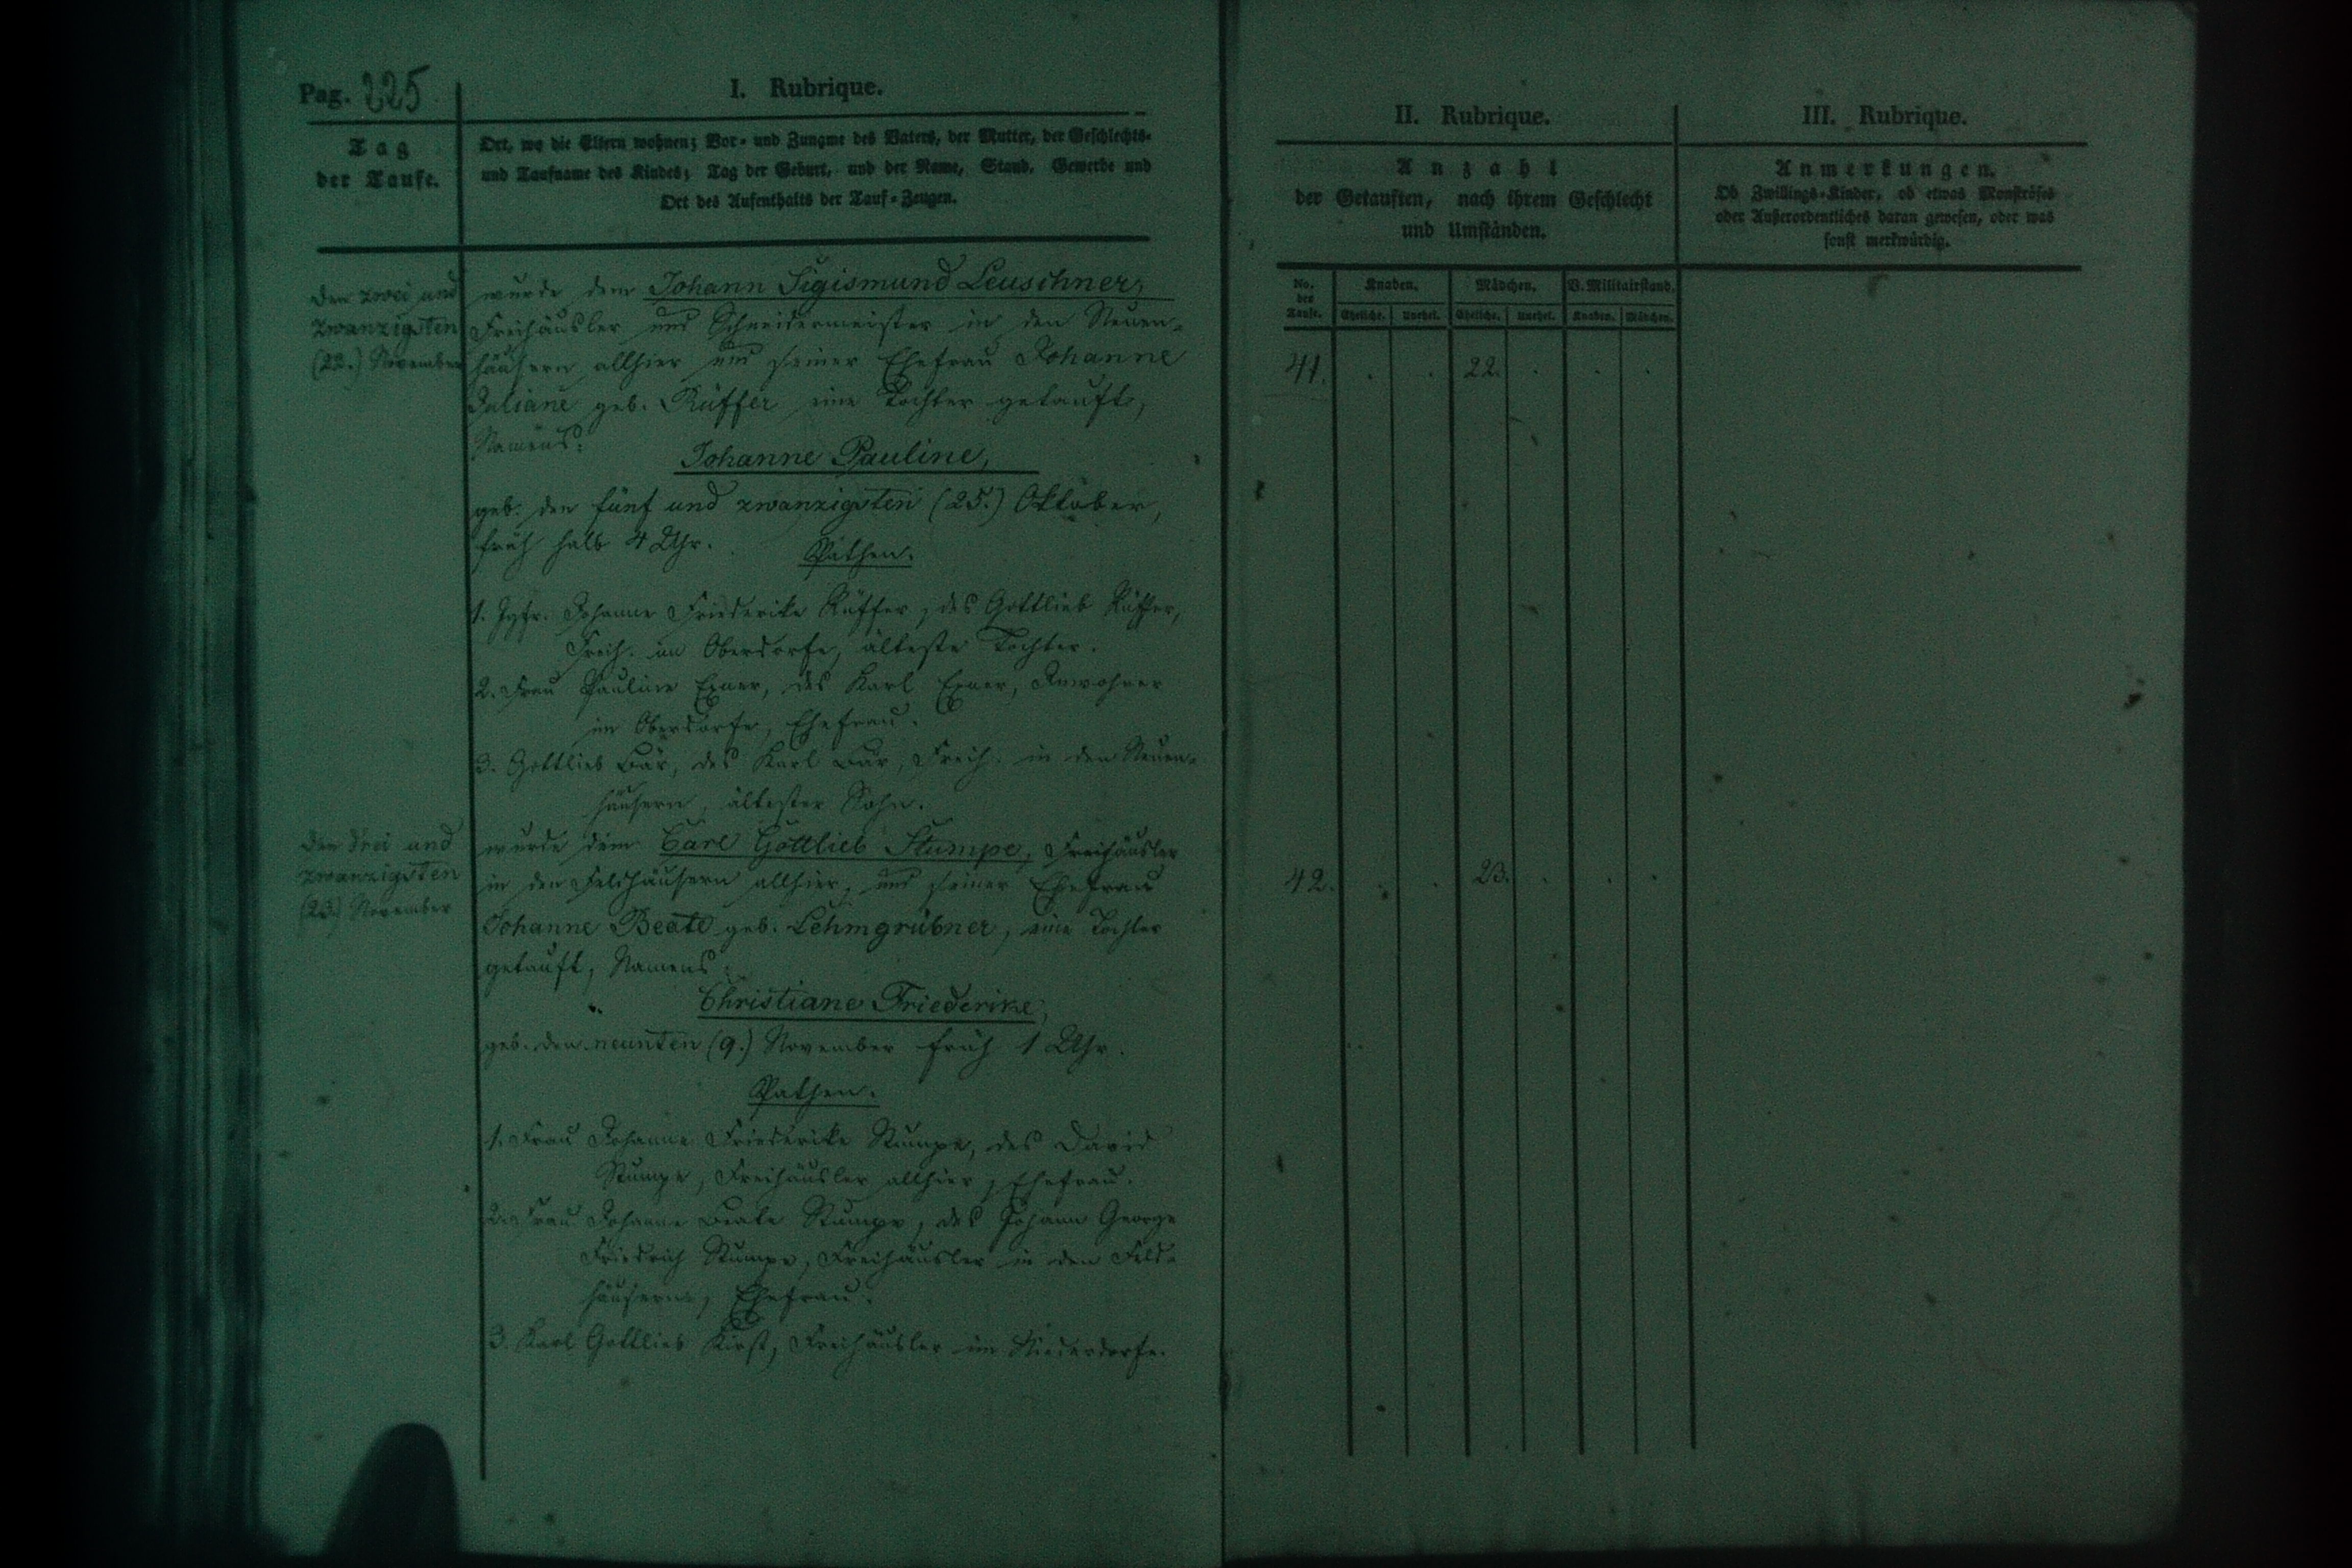 Pag. 225
I. Rubrique.
Tag
der Taufe.
Ort, wo die Eltern wohnen; Vor- und Zuname des Vaters, der Mutter, der Geschlechts-
und Taufname des Kindes; Tag der Geburt, und der Name, Stand, Gewerbe und
Ort des Aufenthalts der Tauf-Zeugen.
Den zwei und
zwanzigsten
(22.) November
wurde dem Johann Sigismund Leuschner,
Freihäusler und Schneidermeister in den Neuen-
häusern allhier und seiner Ehefrau Johanne
Juliane geb. Rüffer eine Tochter getauft,
Namens:
Johanne Pauline,
geb. den fünf und zwanzigsten (25.) Oktober,
früh halb 4 Uhr.
Pathen.
1. Jgfr. Johanne Friederike Rüffer, des Gottlieb Rüffer,
Freih. im Oberdorfe, älteste Tochter.
2. Frau Pauline Exner, des Karl Exner, Inwohner
im Oberdorfe, Ehefrau.
3. Gottlieb Bär, des Karl Bär, Freih. in den Neuen-
häusern, ältester Sohn.
Den drei und
zwanzigsten
(23.) November
wurde dem Carl Gottlieb Stumpe, Freihäusler
in den Feldhäusern allhier, und seiner Ehefrau
Johanne Beate geb. Lehmgrübner, eine Tochter
getauft, Namens
Christiane Friederike,
geb. den neunten (9.) November früh 1 Uhr.
Pathen.
1. Frau Johanne Friederike Stumpe, des David
Stumpe, Freihäusler allhier, Ehefrau.
2. Frau Johanne Beate Stumpe, des Johann George
Friedrich Stumpe, Freihäusler in den Feld-
häusern, Ehefrau.
3. Karl Gottlieb Kirst, Freihäusler im Niederdorfe.
II. Rubrique.
Anzahl
der Getauften, nach ihrem Geschlecht
und Umständen.
No.
der
Taufe.
Knaben. Mädchen. V. Militairstand.
Eheliche. Unehel. Eheliche. Unehel. Knaben. Mädchen.
41. . . 22. . . .
42. . . 23. . . .
III. Rubrique.
Anmerkungen.
Ob Zwillings-Kinder, ob etwas Monströses
oder Außerordentliches daran gewesen, oder was
sonst merkwürdig.